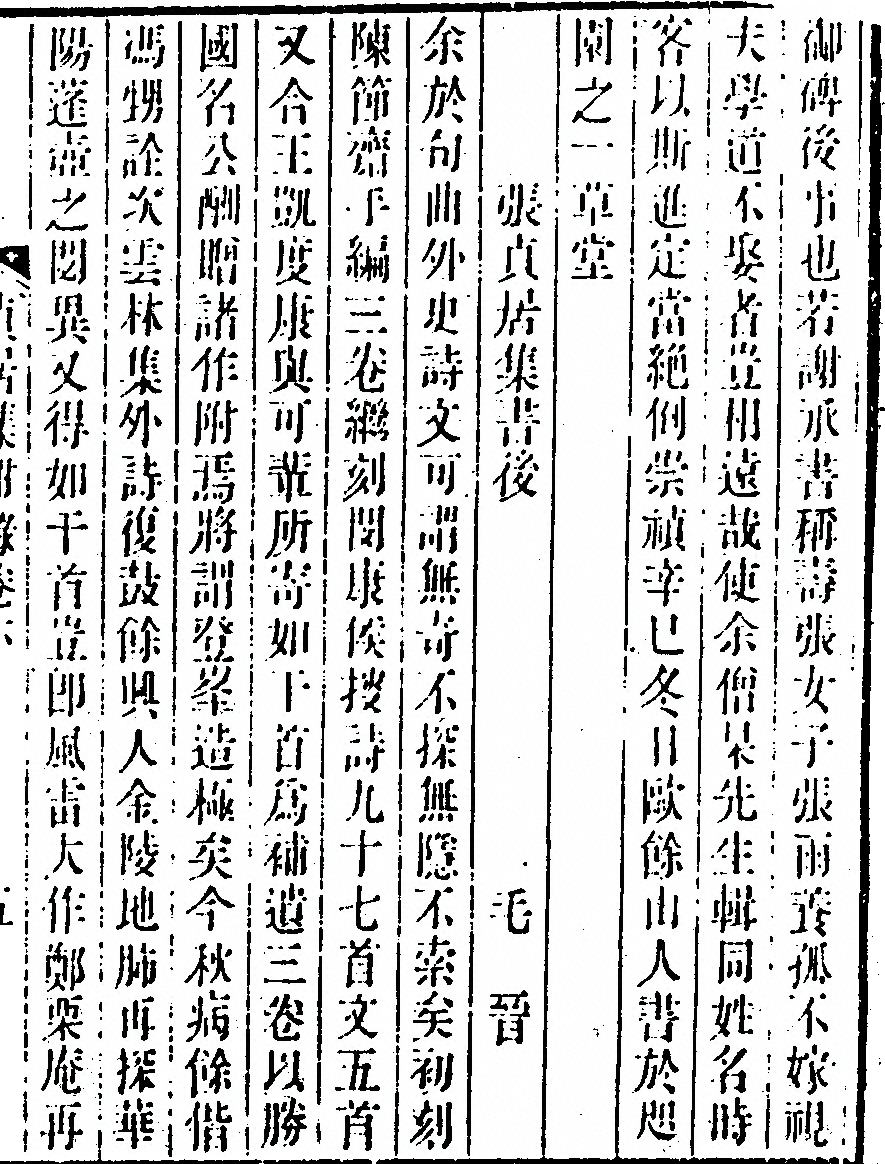 御碑後事也若謝承書稱壽張女子張雨養孤不嫁視
夫學道不娶者豈相遠哉使余僧杲先生輯同姓名時
客以斯進定當絶倒崇禎辛巳冬日歐餘山人書於咫
園之一草堂
張貞居集書後
毛晉
余於句曲外史詩文可謂無奇不探無隱不索矣初刻
陳節齋手編三卷繼刻閔康侯搜詩九十七首文五首
又合王凱度康與可輩所寄如干首爲補遺三卷以勝
國名公酬贈諸作附焉將謂登峯造極矣今秋病餘偕
馮甥詮次雲林集外詩復鼓餘興人金陵地肺再探華
陽蓬壺之閟異又得如干首豈郎風雷大作鄭栗庵再
貞居集附錄卷
五